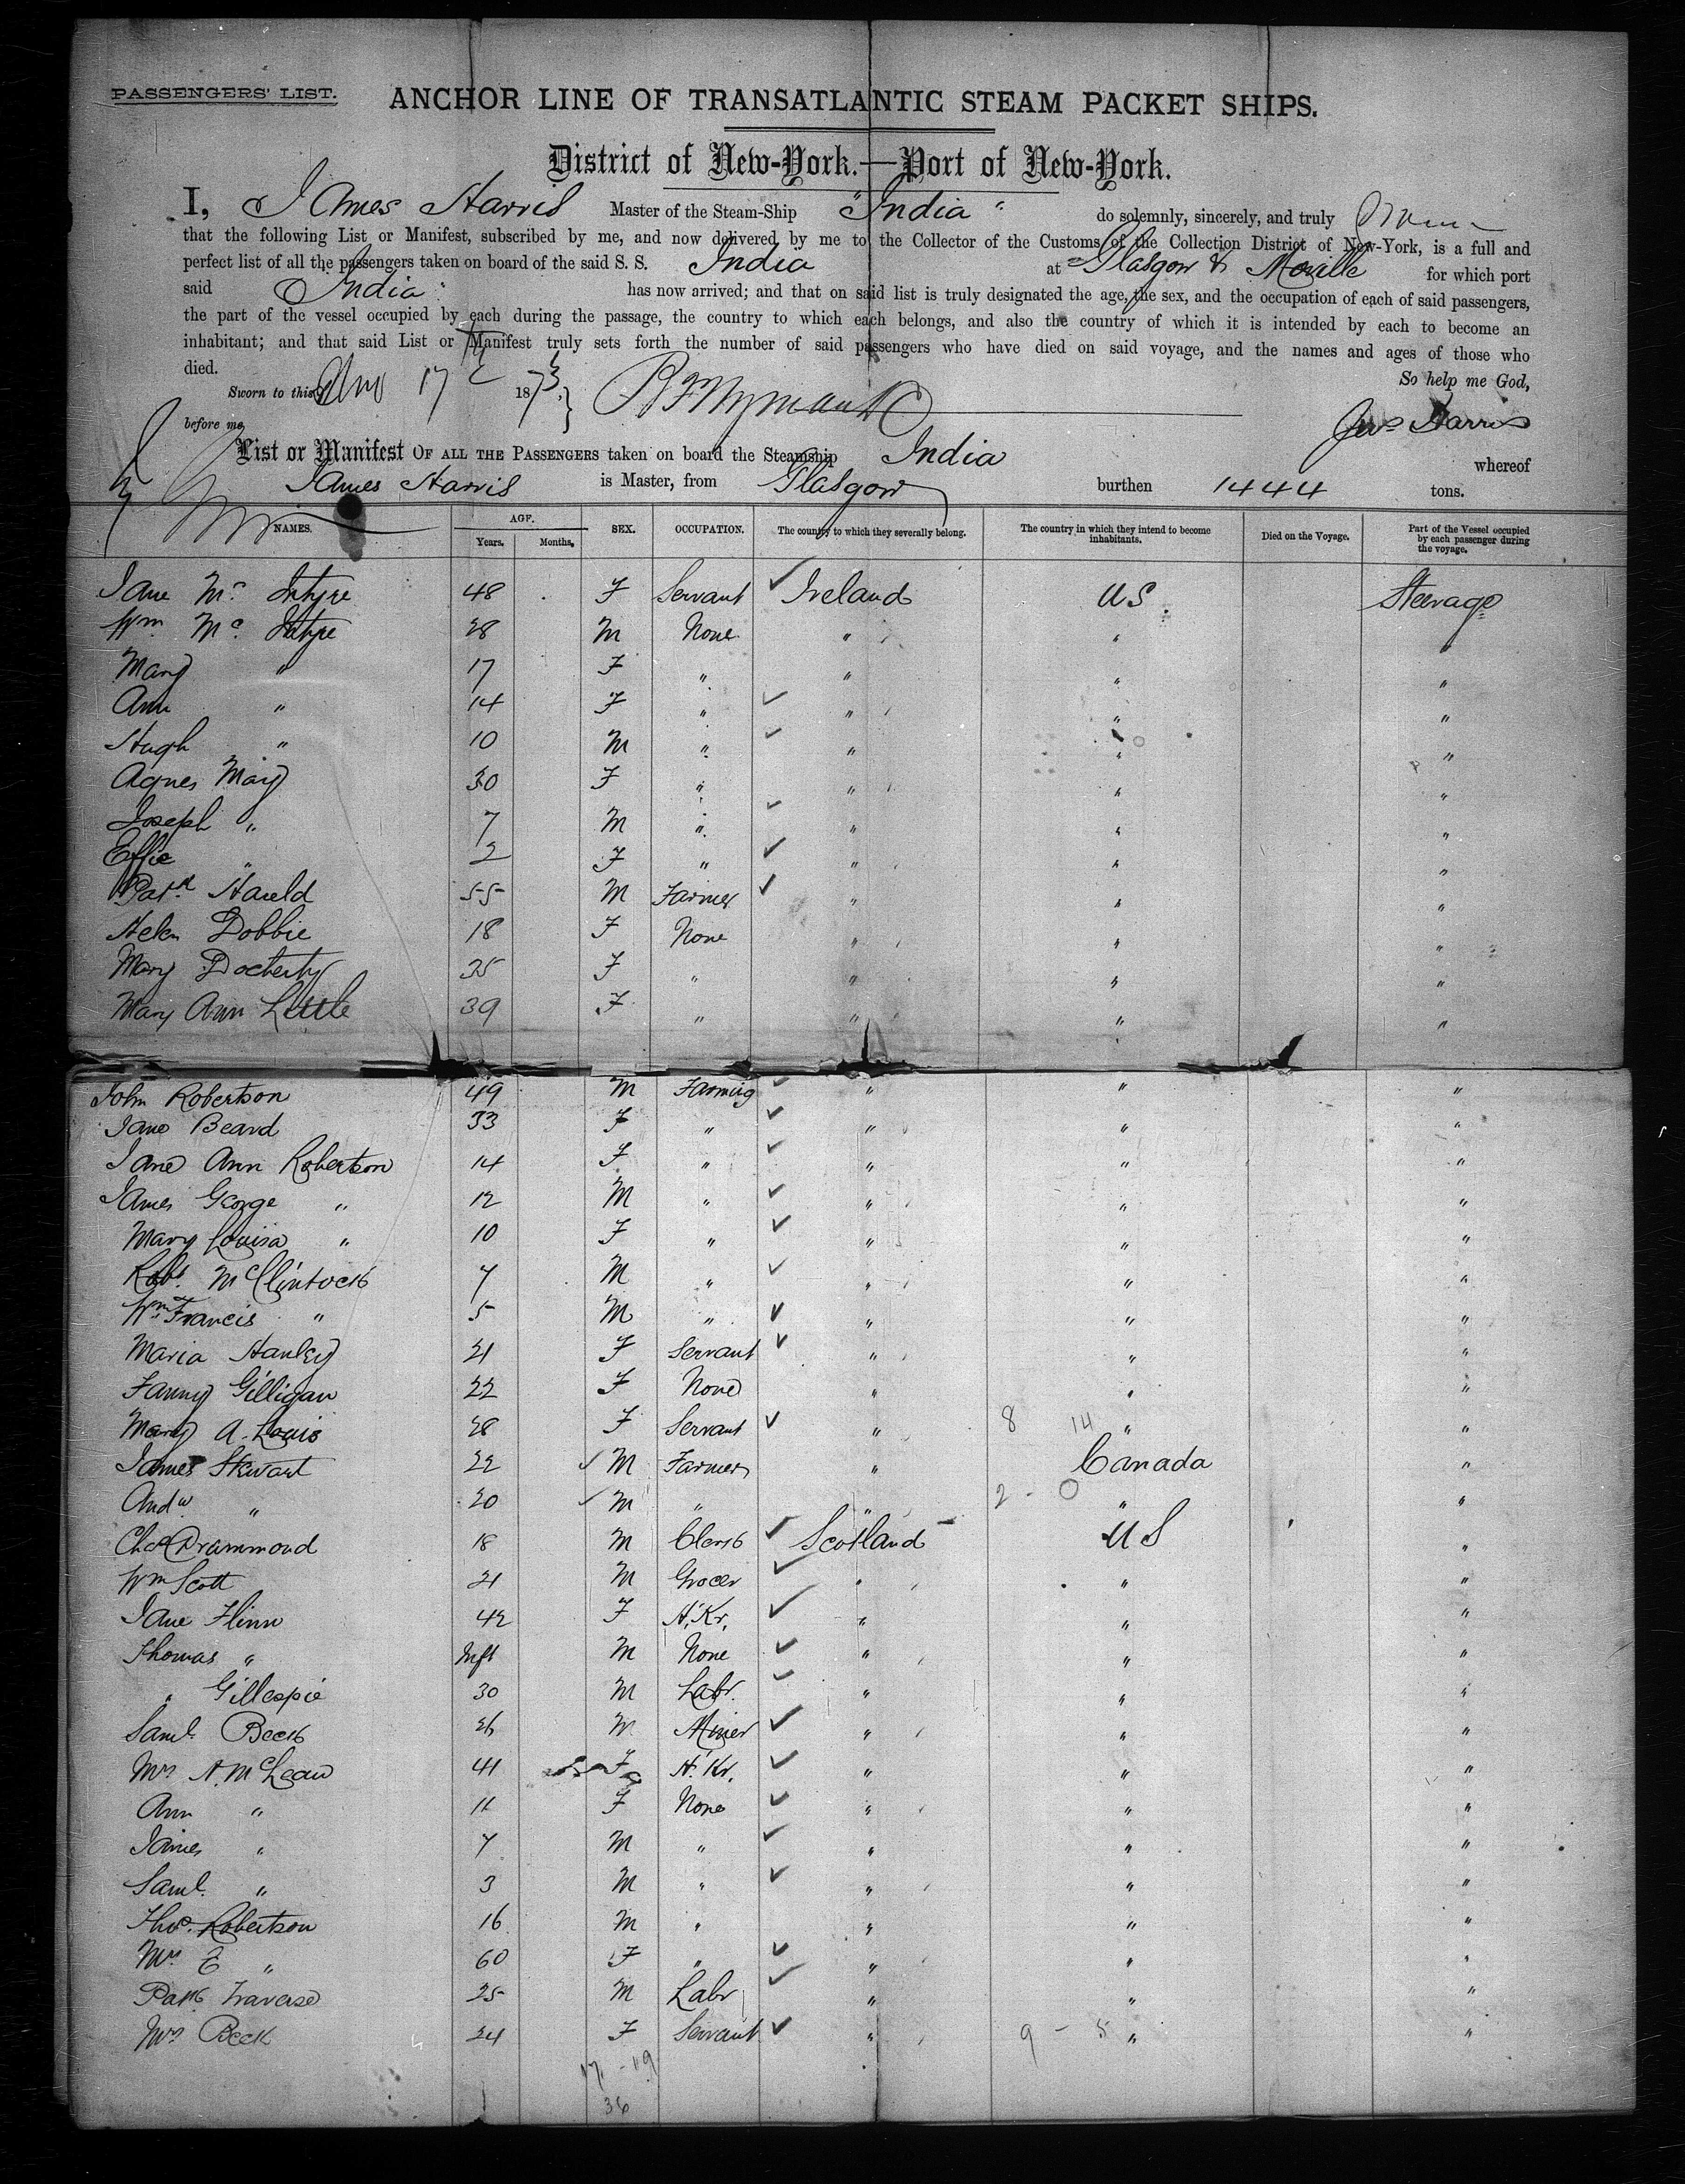 PASSENGERS' LIST.
ANCHOR LINE OF TRANSATLANTIC STEAM PACKET SHIPS.
District of New-York.—Port of New-York.
I, James Harris Master of the Steam-Ship "India" do solemnly, sincerely, and truly
that the following List or Manifest, subscribed by me, and now delivered by me to the Collector of the Customs of the Collection District of New-York, is a full and
perfect list of all the passengers taken on board of the said S. S. India at Glasgow & Moville for which port
said India has now arrived; and that on said list is truly designated the age, the sex, and the occupation of each of said passengers,
the part of the vessel occupied by each during the passage, the country to which each belongs, and also the country of which it is intended by each to become an
inhabitant; and that said List or Manifest truly sets forth the number of said passengers who have died on said voyage, and the names and ages of those who
died.
So help me God,
Sworn to this 17 1873
before me
Jas Harris
List or Manifest OF ALL THE PASSENGERS taken on board the Steamship India whereof
James Harris is Master, from Glasgow burthen 1444 tons.
NAMES. AGE. Years. Months. SEX. OCCUPATION. The country to which they severally belong. The country in which they intend to become inhabitants. Died on the Voyage. Part of the Vessel occupied by each passenger during the voyage.
Jane Mc Intyre 48 F Servant Ireland US Steerage
Wm Mc Intyre 28 M None " " "
Mary " 17 F " " " "
Ann " 14 F " " " "
Hugh " 10 M " " " "
Agnes Mary 30 F " " " "
Joseph " 7 M " " " "
Effie " 2 F " " " "
Patk 55 M Farmer " " "
Helen Dobbie 18 F None " " "
Mary Docherty 35 F " " " "
Mary Ann Little 39 F " " " "
John Robertson 49 M Farming " " "
Jane Beard 33 F " " " "
Jane Ann Robertson 14 F " " " "
James George " 12 M " " " "
Mary Louisa " 10 F " " " "
Robt. McClintock 7 M " " " "
Wm Francis " 5 M " " " "
Maria Hanley 21 F Servant " " "
Fanny Gilligan 22 F None " " "
Mary A. Louis 28 F Servant " 8 14 " "
James Stewart 22 M Farmer " Canada "
Andw " 20 M " " 2 - 0 " "
Chas Drammond 18 M Clerk Scotland US "
Wm Scott 21 M Grocer " " "
Jane Flinn 42 F H.Kr. " " "
Thomas " Inft M None " " "
" Gillespie 30 M Labr. " " "
Saml. Beck 26 M Miner " " "
Mrs A. McLean 41 F H.Kr. " " "
Ann " 11 F None " " "
James " 7 M " " " "
Saml. " 3 M " " " "
Thos. Robertson 16 M " " " "
Mrs E " 60 F " " " "
Patk Traverse 25 M Labr " " "
Mrs Beck 24 F Servant " 9 - 5 " "
17 - 19
36